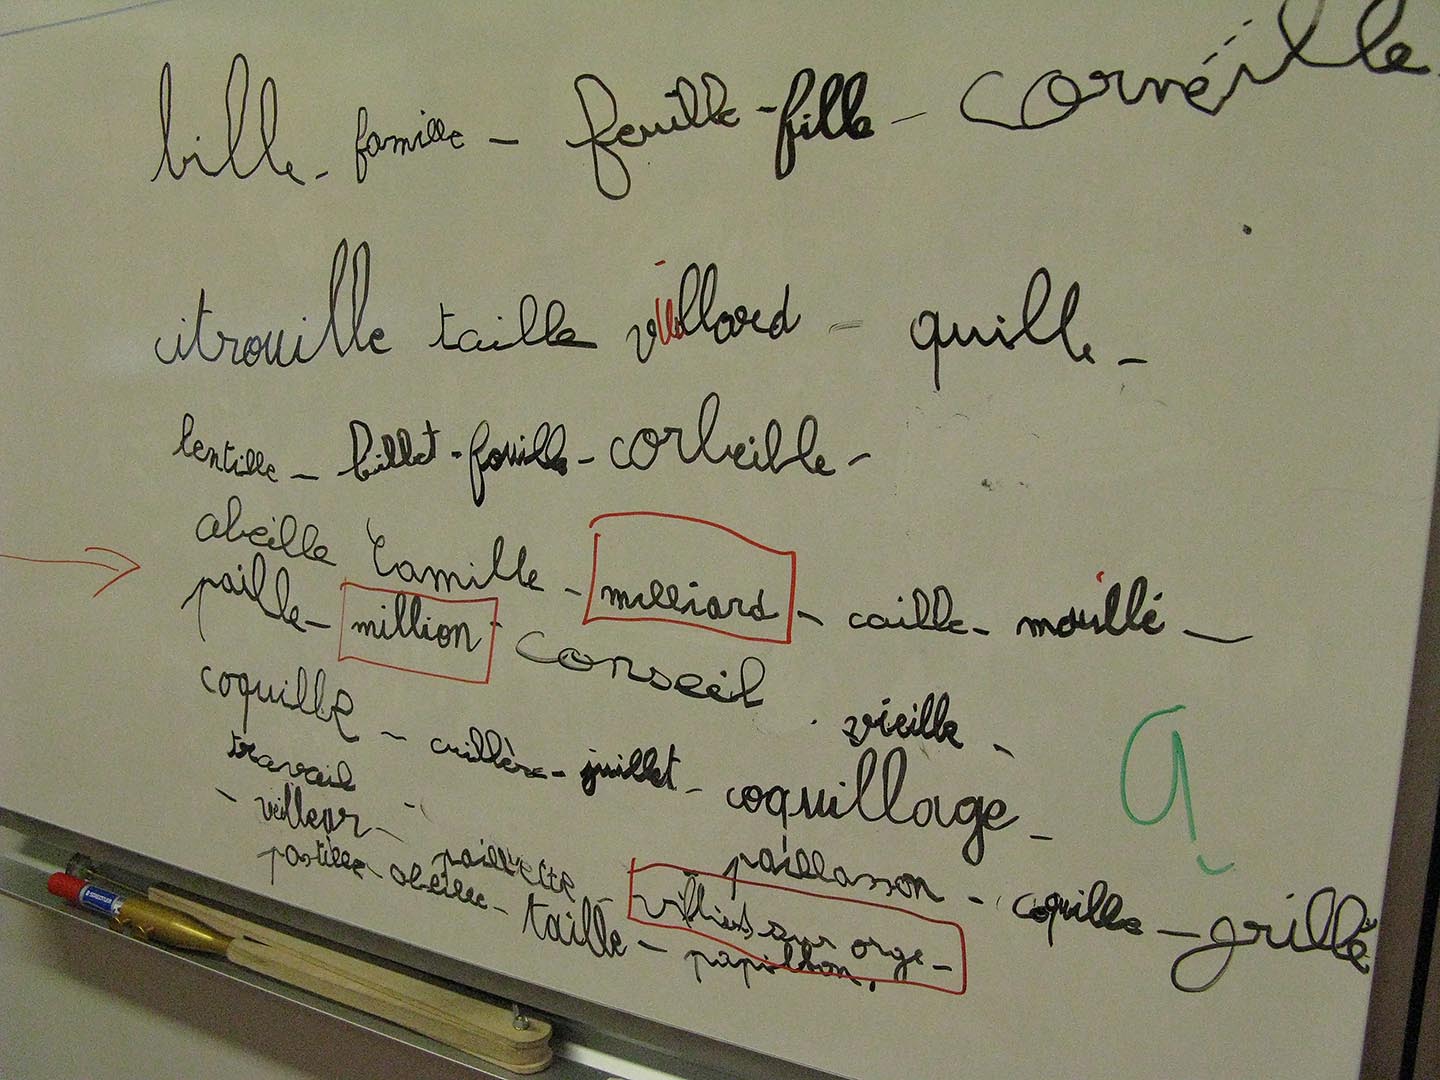 bille - famille - feuille - fille - corneille
citrouille taille vieillard - quille -
lentille - billet - fouille - corbeille -
abeille Camille - milliard - caille - mouillé -
paille - million - Conseil
coquille - cuillère - juillet - vieille -
coquillage -
travail
- veilleur - paillette - paillasson - coquille - grille
pastille - abeille - taille - villiers sur orge -
papillon.
a